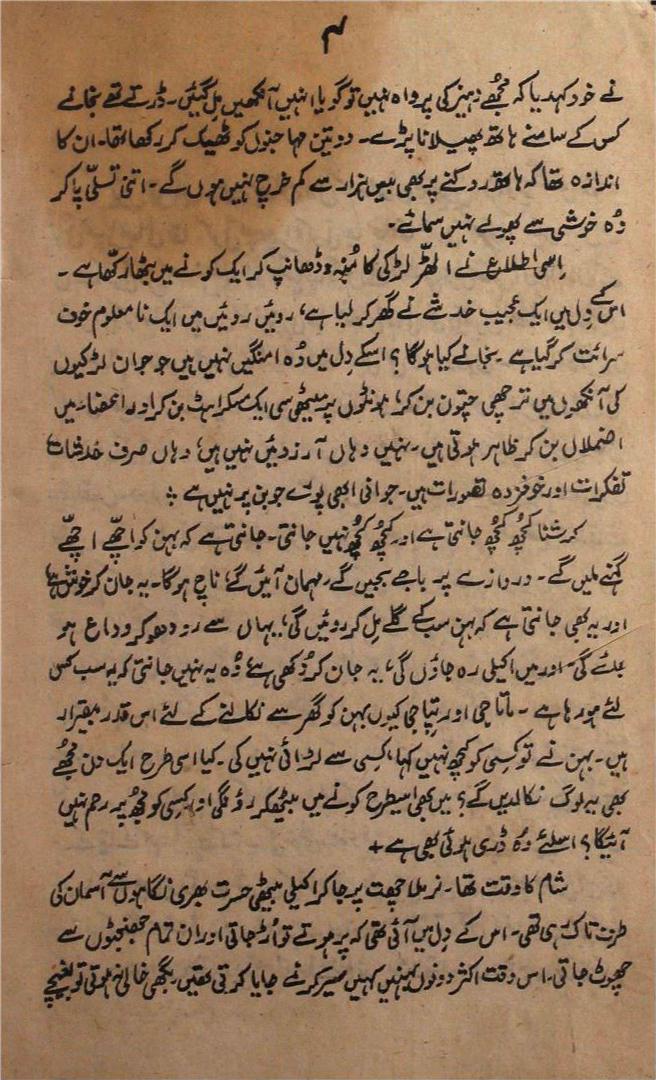 ۴
نے خود کہدیا کہ مجھے دہیز کی پرواہ نہیں تو گویا انہیں آنکھیں مل گئیں۔ ڈرتے تھے نجانے
کس کے سامنے ہاتھ پھیلانا پڑے۔ دو تین مہاجنوں کو ٹھیک کر رکھا تھا۔ ان کا
اندازہ تھا کہ ہاتھ روکنے پر بھی بیس ہزار سے کم خرچ نہیں ہوں گے۔ اتنی تسلّی پا کر
وُہ خوشی سے پھولے نہیں سمائے۔
اِسی اطلاع نے الھڑ لڑکی کا مُنہ ڈھانپ کر ایک کونے میں بٹھا رکھّا ہے۔
اس کے دِل میں ایک عجیب خدشے نے گھر کر لیا ہے، روئیں روئیں میں ایک نامعلوم خوف
سرائت کر گیا ہے۔ نجانے کیا ہوگا؟ اسکے دِل میں وُہ امنگیں نہیں ہیں جو جوان لڑکیوں
کی آنکھوں میں ترچھی چتون بن کر، ہونٹوں پر میٹھی سی ایک مسکراہٹ بن کر اور اعضاء میں
اضملال بن کر ظاہر ہوتی ہیں۔ نہیں وہاں آرزوئیں نہیں ہیں، وہاں صرف خدشات
تفکرات اور خوفزدہ تصورات ہیں۔ جوانی ابھی پورے جوبن پر نہیں ہے ؞
کرشنا کُچھ کُچھ جانتی ہے اور کُچھ کُچھ نہیں جانتی۔ جانتی ہے کہ بہن کو اچھّے اچھّے
گہنے ملیں گے۔ دروازے پر باجے بجیں گے، مہمان آئیں گے، ناچ ہوگا۔ یہ جان کر خوش ہے
اور یہ بھی جانتی ہے کہ بہن سب کے گلے مِل کر روئیں گی، یہاں سے رو دھو کر وداع ہو
جائے گی۔ اور میں اکیلی رہ جاؤں گی، یہ جان کر دُکھی ہے، وُہ یہ نہیں جانتی کہ یہ سب کس
لئے ہو رہا ہے۔ ماتا جی اور پِتا جی کیوں بہن کو گھر سے نکالنے کے لئے اس قدر بیقرار
ہیں۔ بہن نے تو کسی کو کچھ نہیں کہا، کسی سے لڑائی نہیں کی۔ کیا اسی طرح ایک دن مجھے
بھی یہ لوگ نکالدیں گے؟ میں بھی اسیطرح کونے میں بیٹھکر روؤنگی اور کسی کو مجھ پر رحم نہیں
آئیگا؟ اسلئے وُہ ڈری ہوئی بھی ہے +
شام کا وقت تھا۔ نرملا چھت پر جا کر اکیلی بیٹھی حسرت بھری نگاہوں سے آسمان کی
طرف تاک رہی تھی۔ اس کے دِل میں آئی تھی کہ پر ہوتے تو اُڑ جاتی اور ان تمام جھنجٹوں سے
چھوٹ جاتی۔ اس وقت اکثر دونوں بہنیں کہیں سیر کرنے جایا کرتی تھیں۔ بگھی خالی نہ ہوتی تو بغیچے